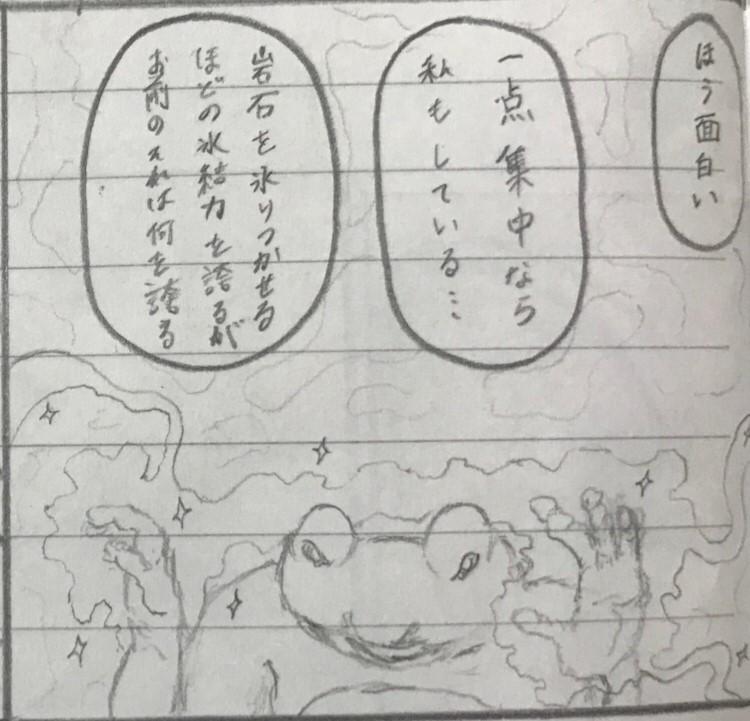 ほう面白い
一点集中なら
私もしている…
岩石を氷りつかせる
ほどの氷結力を誇るが
お前のそれは何を誇る